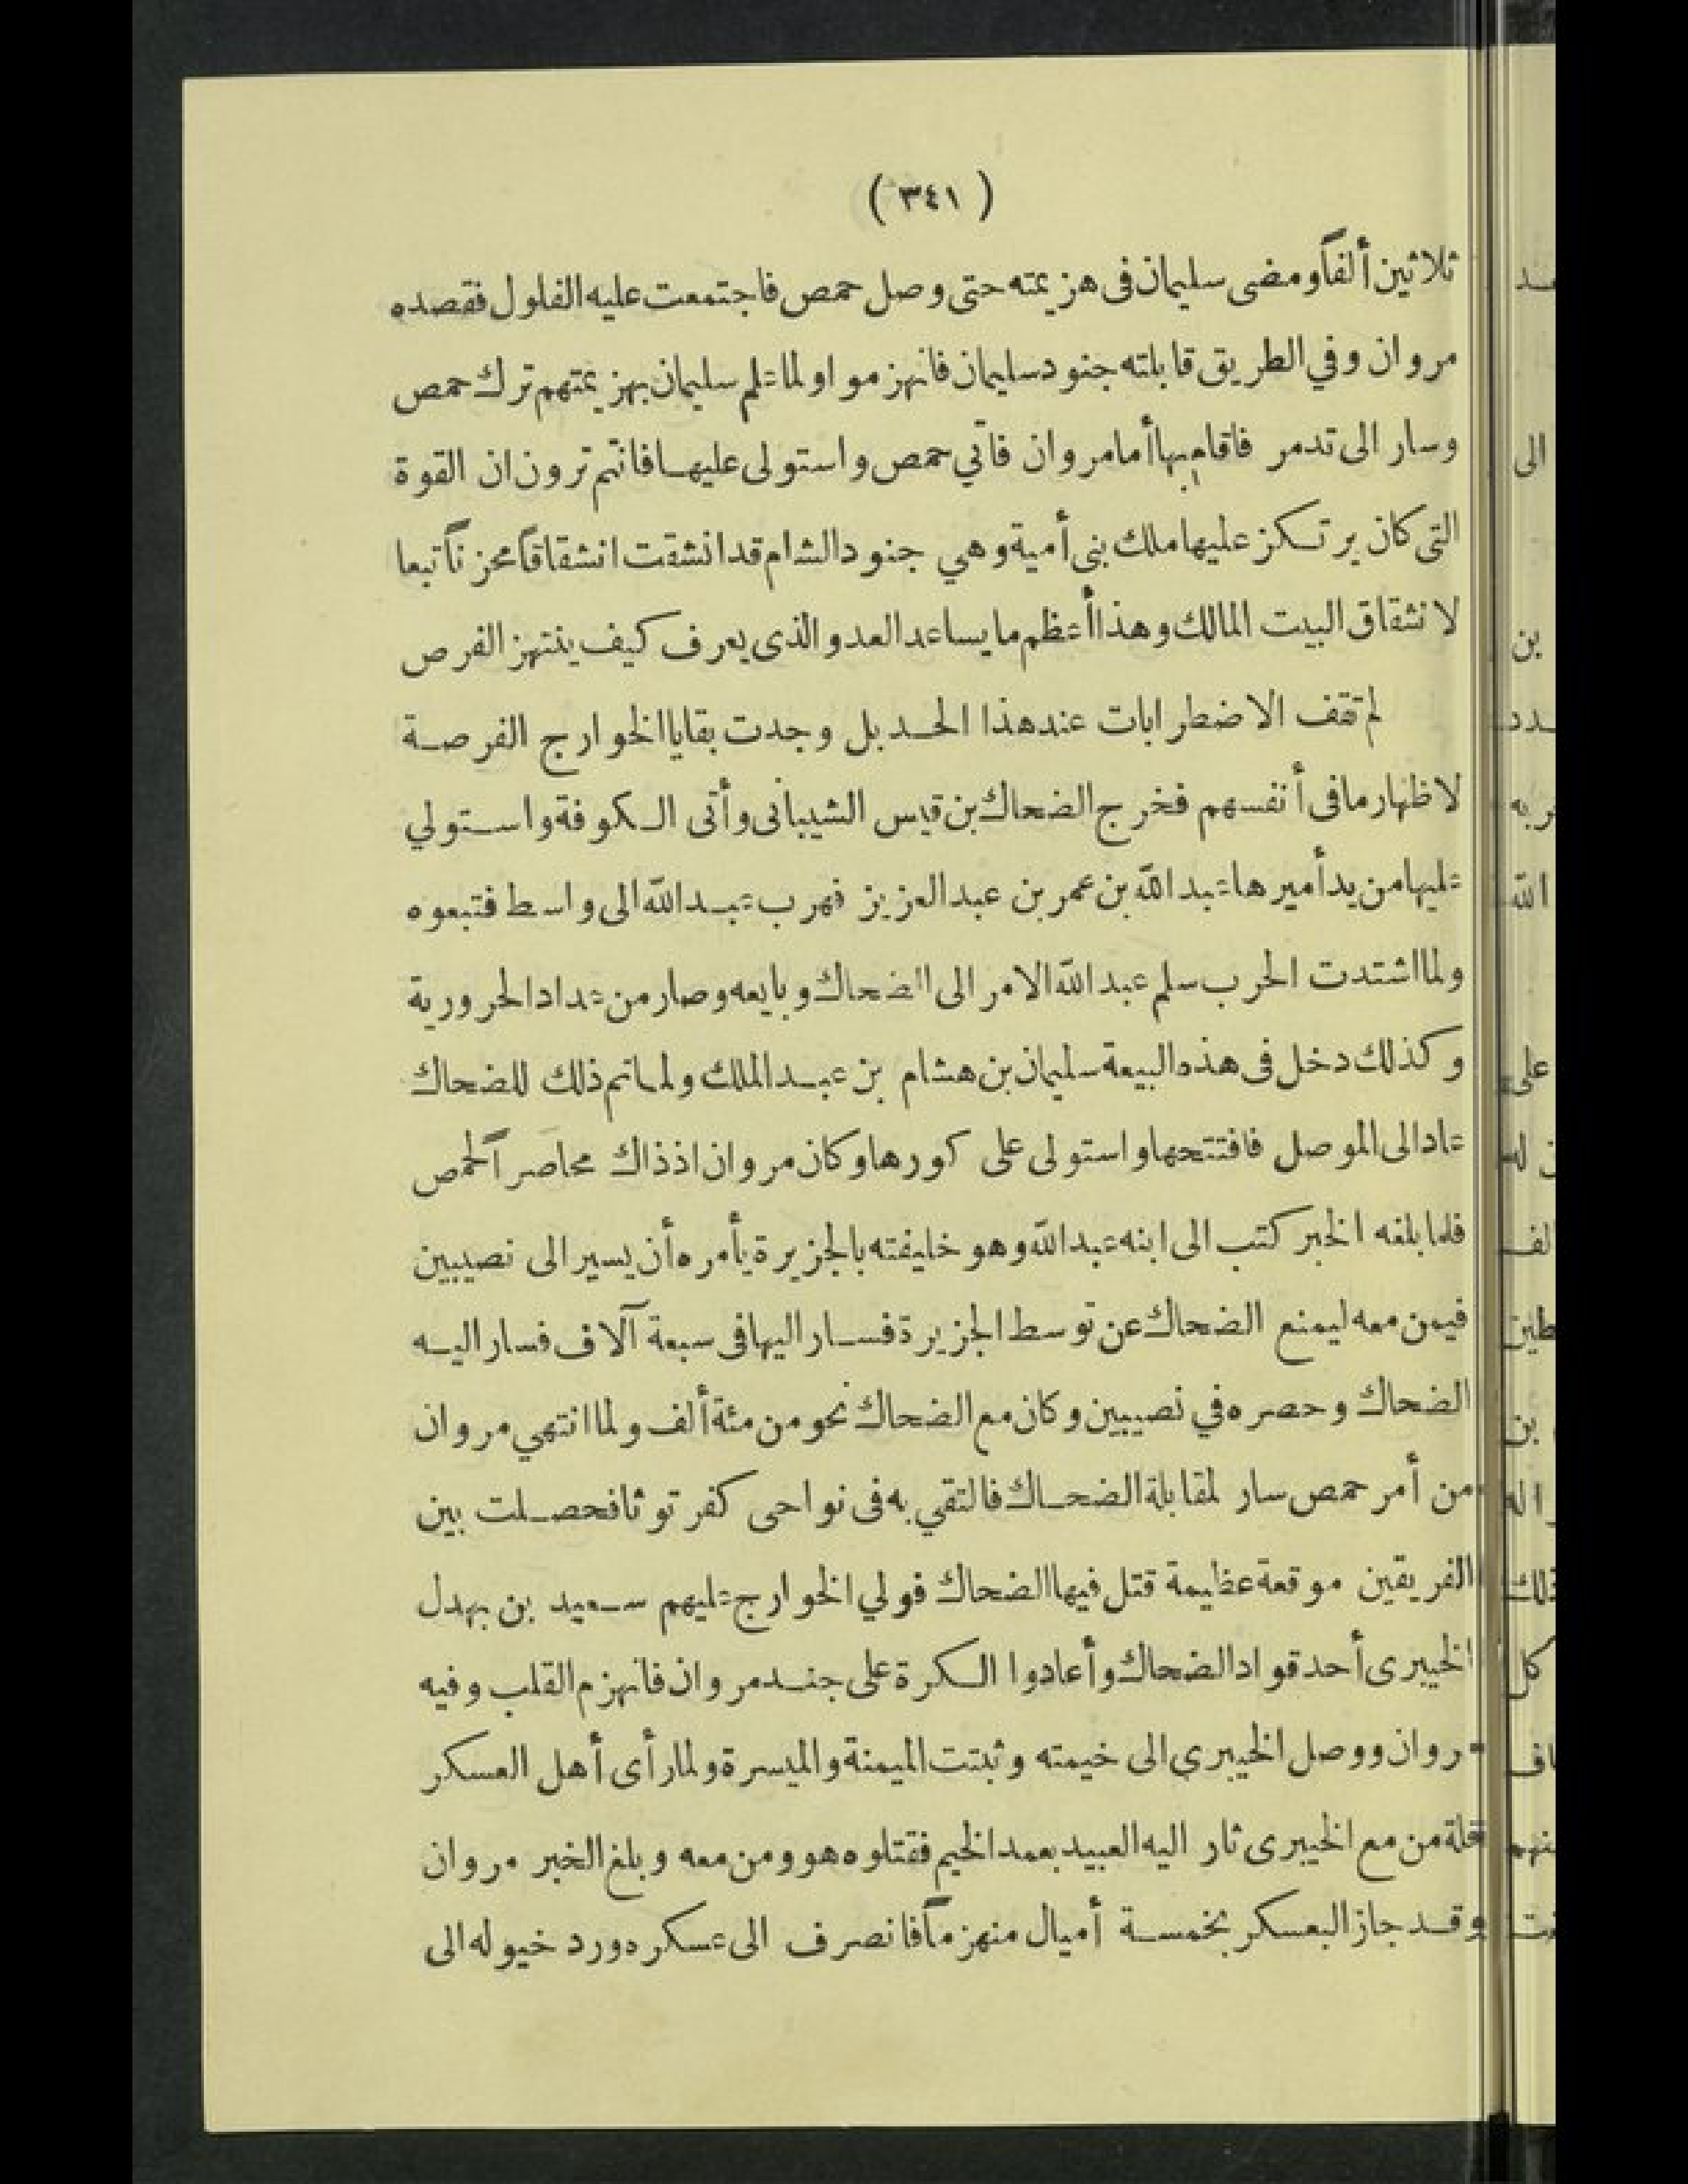 ( ٣٤١ )
ثلاثين ألفاً ومضى سليمان فى هزيمته حتى وصل حمص فاجتمعت عليه الفلول فقصده
مروان وفي الطريق قابلته جنود سليمان فانهزموا ولما علم سليمان بهزيمتهم ترك حمص
وسار الى تدمر فاقام بها أما مروان فأتي حمص واستولى عليها فانتم ترون ان القوة
التى كان يرتكز عليها ملك بنى أمية وهي جنود الشام قد انشقت انشقاقاً محزناً تبعا
لانشقاق البيت المالك وهذا أعظم ما يساعد العدو الذى يعرف كيف ينتهز الفرص
لم تقف الاضطرابات عند هذا الحد بل وجدت بقايا الخوارج الفرصة
لاظهار ما فى أنفسهم فخرج الضحاك بن قيس الشيبانى وأتى الكوفة واستولي
عليها من يد أميرها عبد الله بن عمر بن عبد العزيز فهرب عبد الله الى واسط فتبعوه
ولما اشتدت الحرب سلم عبد الله الامر الى الضحاك وبايعه وصار من عداد الحرورية
وكذلك دخل فى هذه البيعة سليمان بن هشام بن عبد الملك ولما تم ذلك للضحاك
عاد الى الموصل فافتتحها واستولى على كورها وكان مروان اذ ذاك محاصراً لحمص
فلما بلغه الخبر كتب الى ابنه عبد الله وهو خليفته بالجزيرة يأمره أن يسير الى نصيبين
فيمن معه ليمنع الضحاك عن توسط الجزيرة فسار اليها فى سبعة آلاف فسار اليه
الضحاك وحصره في نصيبين وكان مع الضحاك نحو من مئة ألف ولما انتهي مروان
من أمر حمص سار لمقابلة الضحاك فالتقي به فى نواحى كفرتوثا فحصلت بين
الفريقين موقعة عظيمة قتل فيها الضحاك فولي الخوارج عليهم سعيد بن بهدل
الخيبرى أحد قواد الضحاك وأعادوا الكرة على جند مروان فانهزم القلب وفيه
مروان ووصل الخيبري الى خيمته وثبتت الميمنة والميسرة ولما رأى أهل العسكر
قلة من مع الخيبرى ثار اليه العبيد بعمد الخيم فقتلوه هو ومن معه وبلغ الخبر مروان
وقد جاز العسكر بخمسة أميال منهزماً فانصرف الى عسكره ورد خيوله الى